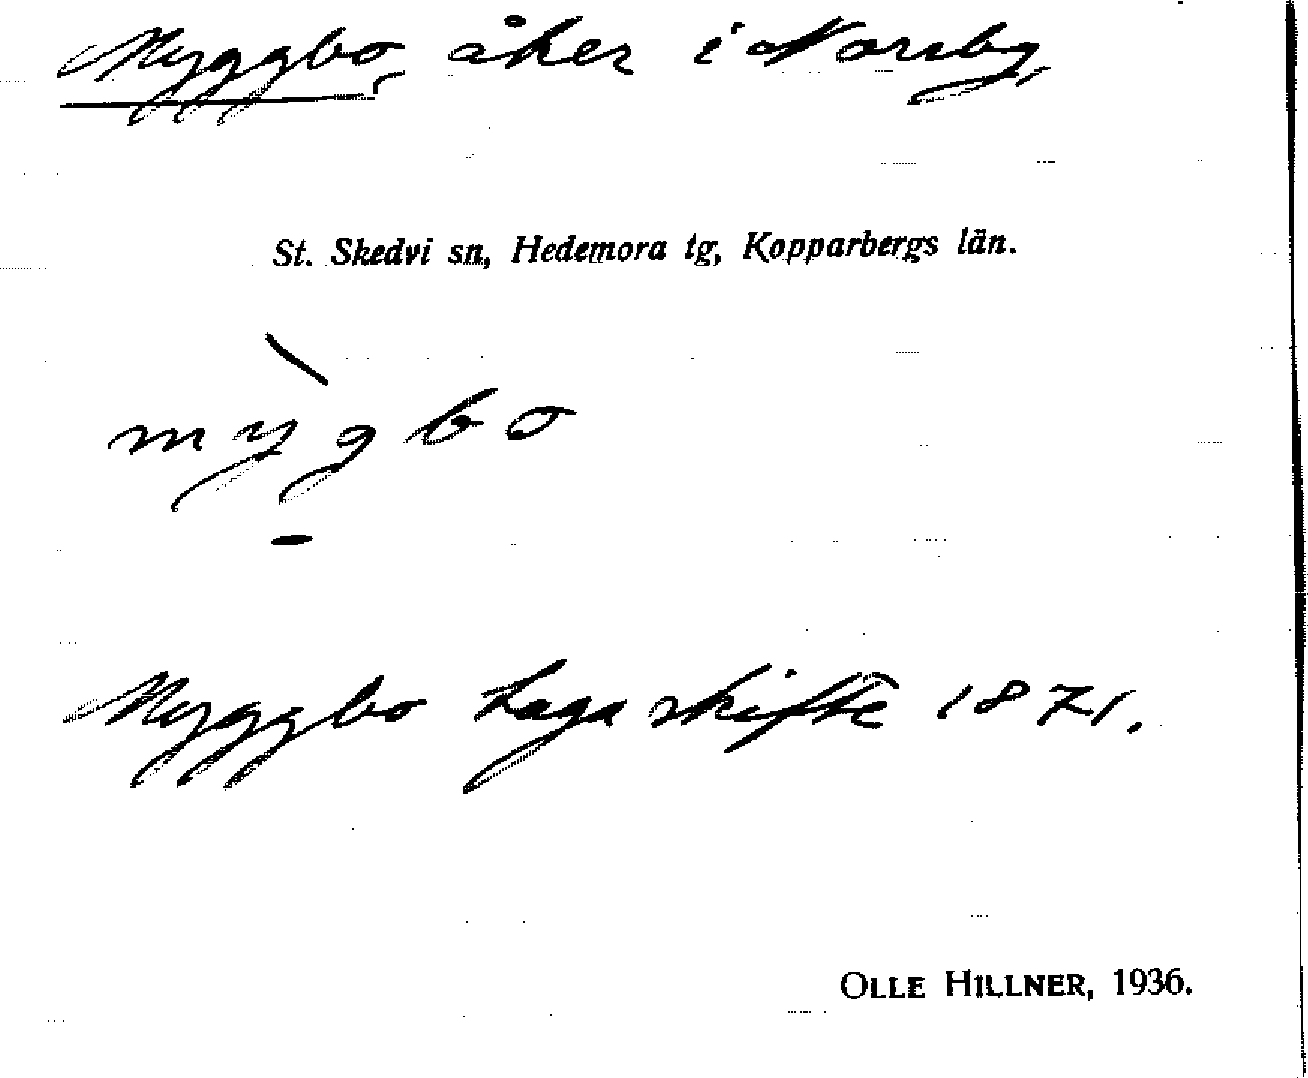 Myggbo, åker i Norsby,
St. Skedvi sn, Hedemora tg, Kopparbergs län.
mỳgbo
Myggbo Laga skifte 1871.
OLLE HILLNER, 1936.